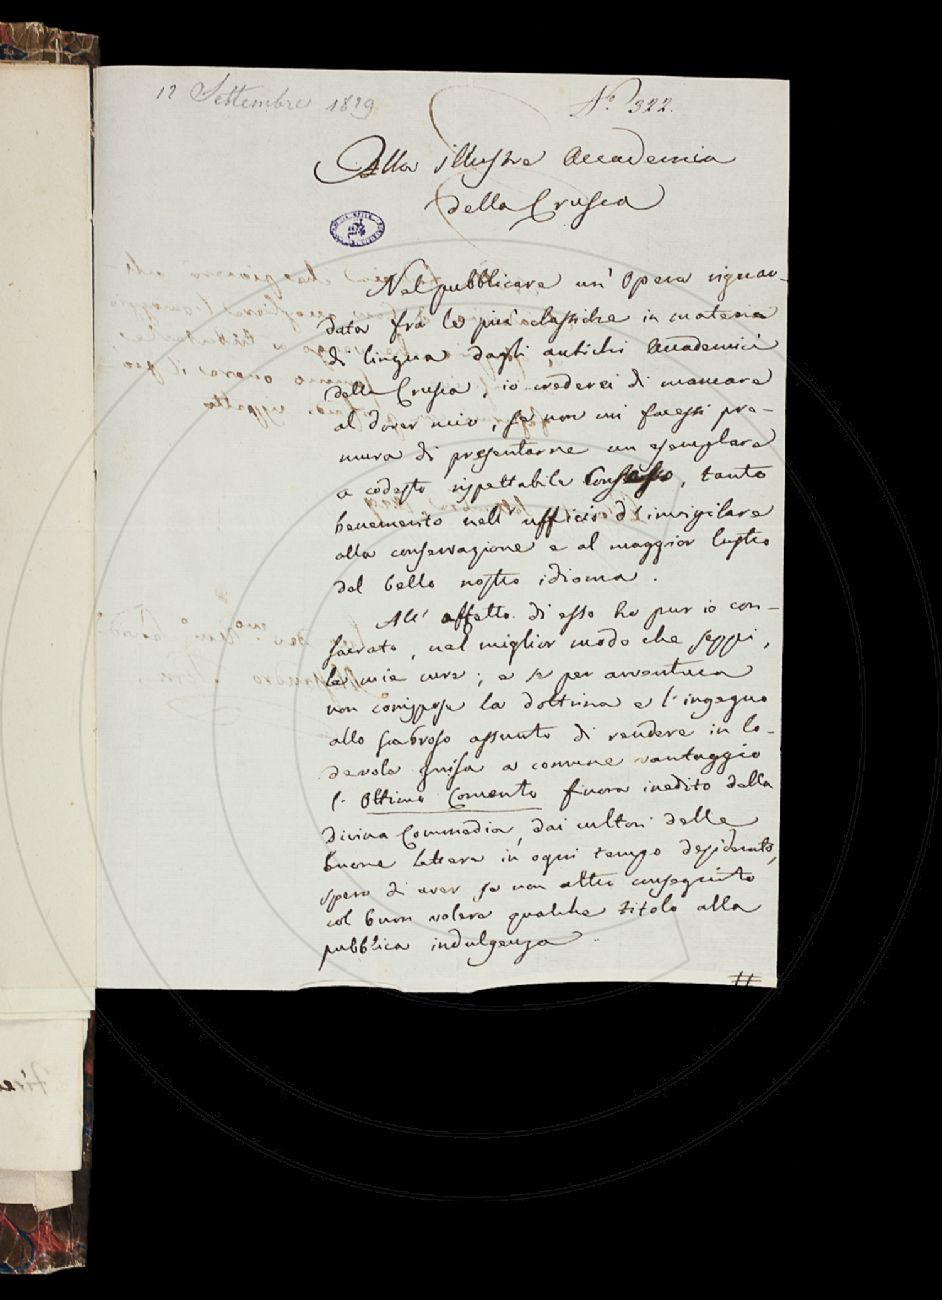 12 Settembre 1829
N.° 322.
Alla illustre Accademia
della Crusca
Nel pubblicare un' Opera riguar-
data fra le più classiche in materia
di lingua dagli antichi Accademici
della Crusca, io crederei di mancare
al dover mio, se non mi facessi pre-
mura di presentarne un esemplare
a codesto rispettabile Consesso, tanto
benemerito nell' ufficio d' invigilare
alla conservazione e al maggior lustro
del bello nostro idioma.
All' affetto di esso ho pur io con-
sacrato, nel miglior modo che seppi,
le mie cure; e se per avventura
non corrispose la dottrina e l' ingegno
allo scabroso assunto di rendere in lo-
devole guisa a comune vantaggio
l' Ottimo Comento finora inedito della
divina Commedia, dai cultori delle
buone lettere in ogni tempo desiderato,
spero di aver se non altro conseguito
col buon volere qualche titolo alla
pubblica indulgenza.